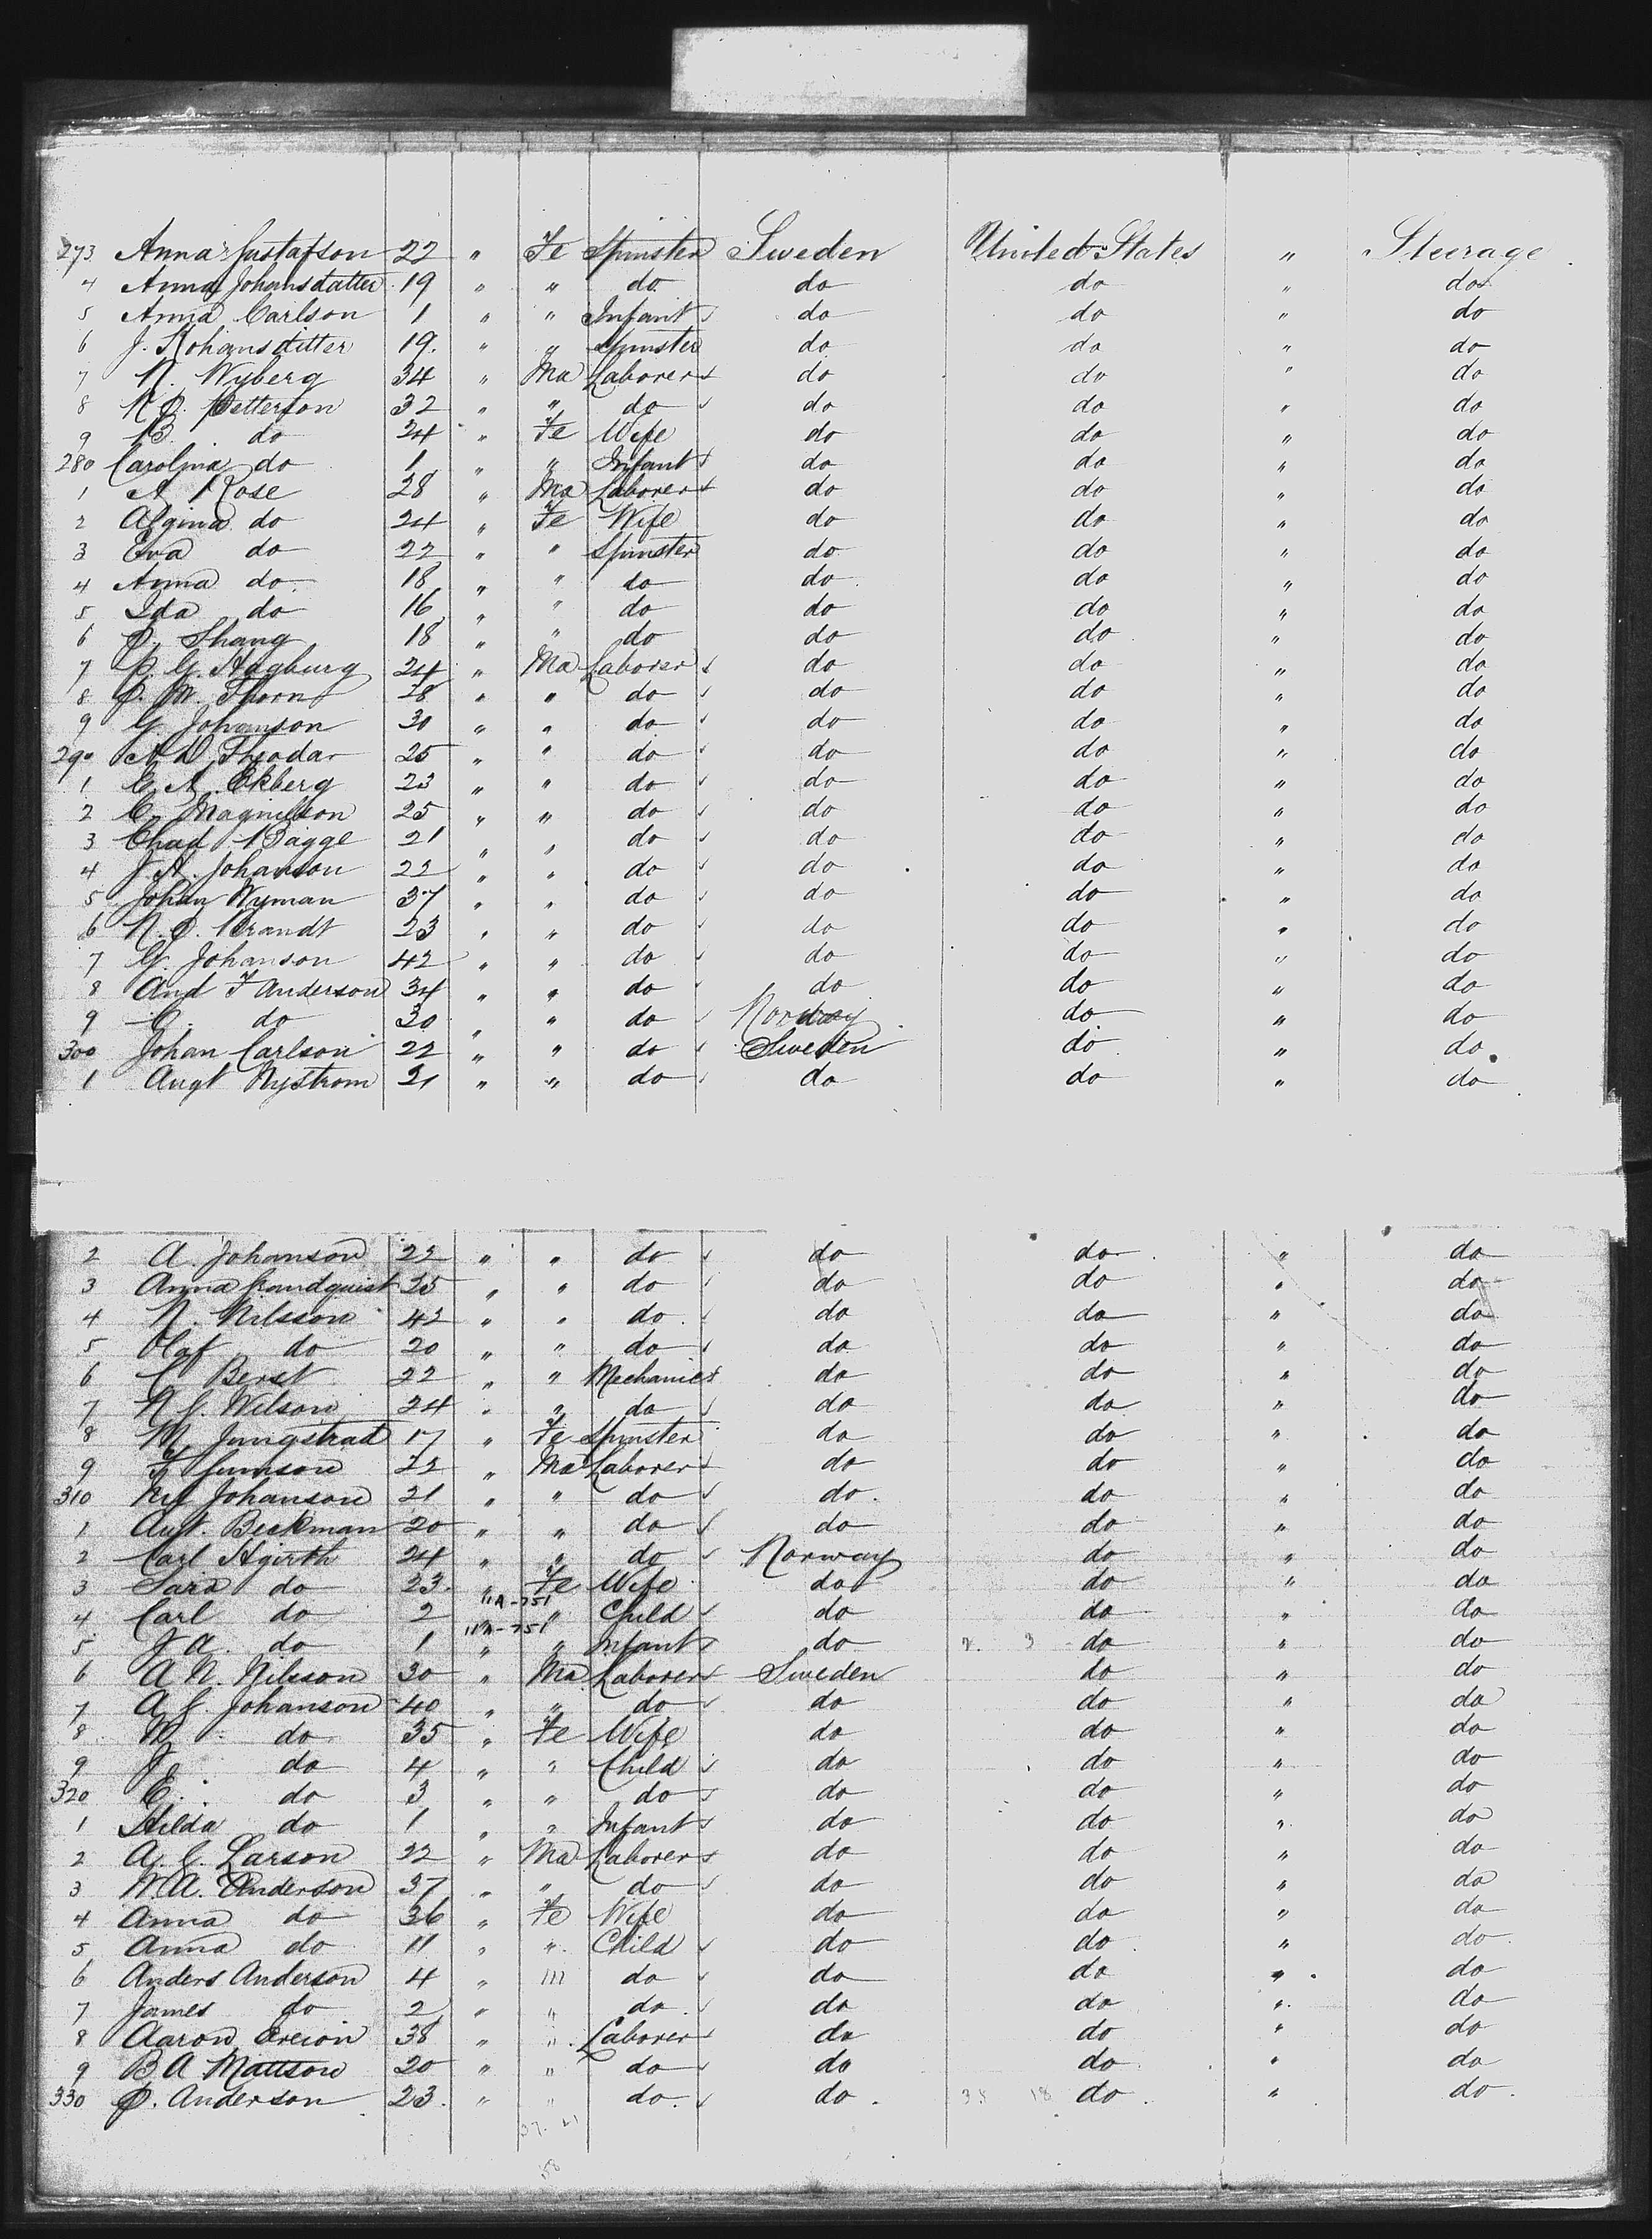 273 Anna Gustafson 22 " Fe Spinster Sweden United States " Steerage
4 Anna Johansdatter 19 " " do do do " do
5 Anna Carlson 1 " " Infant do do " do
6 J. Johansditter 19. " " Spinster do do " do
7 N. Wyberg 34 " Ma Laborer do do " do
8 N P. Petterson 32 " " do do do " do
9 B. do 24 " Fe Wife do do " do
280 Carolina do 1 " " Infant do do " do
1 A Rose 28 " Ma Laborer do do " do
2 do 24 " Fe Wife do do " do
3 Eva do 22 " " Spinster do do " do
4 Anna do 18 " " do do do " do
5 Ida do 16 " " do do do " do
6 P. Shang 18 " " do do do " do
7 P. G. Hagburg 24 " Ma Laborer do do " do
8 P. M. Thorn 28 " " do do do " do
9 G. Johanson 30 " " do do do " do
290 A D Theodar 25 " " do do do " do
1 C. A. Ekberg 23 " " do do do " do
2 C. Magnilson 25 " " do do do " do
3 Chad Bagge 21 " " do do do " do
4 J A. Johanson 22 " " do do do " do
5 Johan Wyman 37 " " do do do " do
6 N. P. Brandt 23 " " do do do " do
7 G. Johanson 42 " " do do do " do
8 And F Anderson 34 " " do do do " do
9 C. do 30 " " do Norway do " do
300 Johan Carlson 22 " " do Sweden do " do
1 Augt Nystrom 21 " " do do do " do
2 A. Johanson 22 " " do do do " do
3 Anna 25 " " do do do " do
4 N. Nilsson 42 " " do do do " do
5 Olaf do 20 " " do do do " do
6 C Berst 22 " " Mechanic do do " do
7 N C. Wilson 24 " " do do do " do
8 M. Jungstrat 17 " Fe Spinster do do " do
9 F 22 " Ma Laborer do do " do
310 Nil Johanson 21 " " do do do " do
1 Aut. Beckman 20 " " do do do " do
2 Carl Hgirth 24 " " do Norway do " do
3 Sara do 23. " Fe Wife do do " do
4 Carl do 2 11A-751 " Child do do " do
5 J A. do 1 11A-751 " " Infant do do " do
6 A N. Nilsson 30 " Ma Laborer Sweden do " do
7 A G. Johanson 40 " " do do do " do
8 M do 35 " Fe Wife do do " do
9 J. do 4 " " Child do do " do
320 E. do 3 " " do do do " do
1 Hilda do 1 " " Infant do do " do
2 A. G. Larson 22 " Ma Laborer do do " do
3 N A. Anderson 37 " " do do do " do
4 Anna do 36 " Fe Wife do do " do
5 Anna do 11 " " Child do do " do
6 Anders Anderson 4 " " do do do " do
7 James do 2 " " do do do " do
8 Aaron 38 " " Laborer do do " do
9 B A Mattson 20 " " do do do " do
330 P. Anderson 23. " " do. do do " do